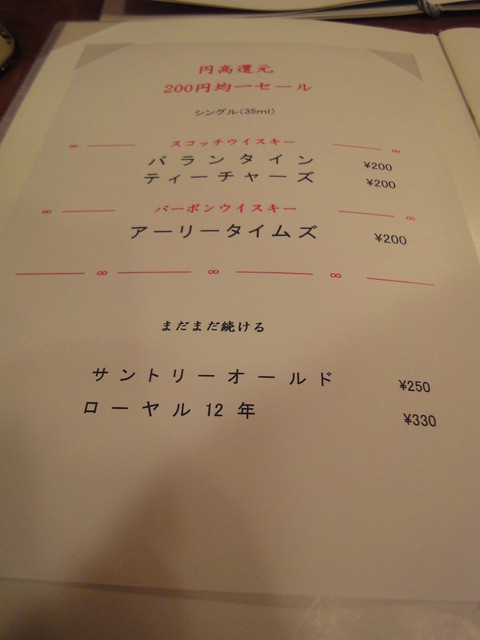 円高還元
200円均一セール
シングル(35ml)
スコッチウイスキー
バランタイン ¥200
ティーチャーズ ¥200
バーボンウイスキー
アーリータイムズ ¥200
まだまだ続ける
サントリーオールド ¥250
ローヤル 12 年 ¥330